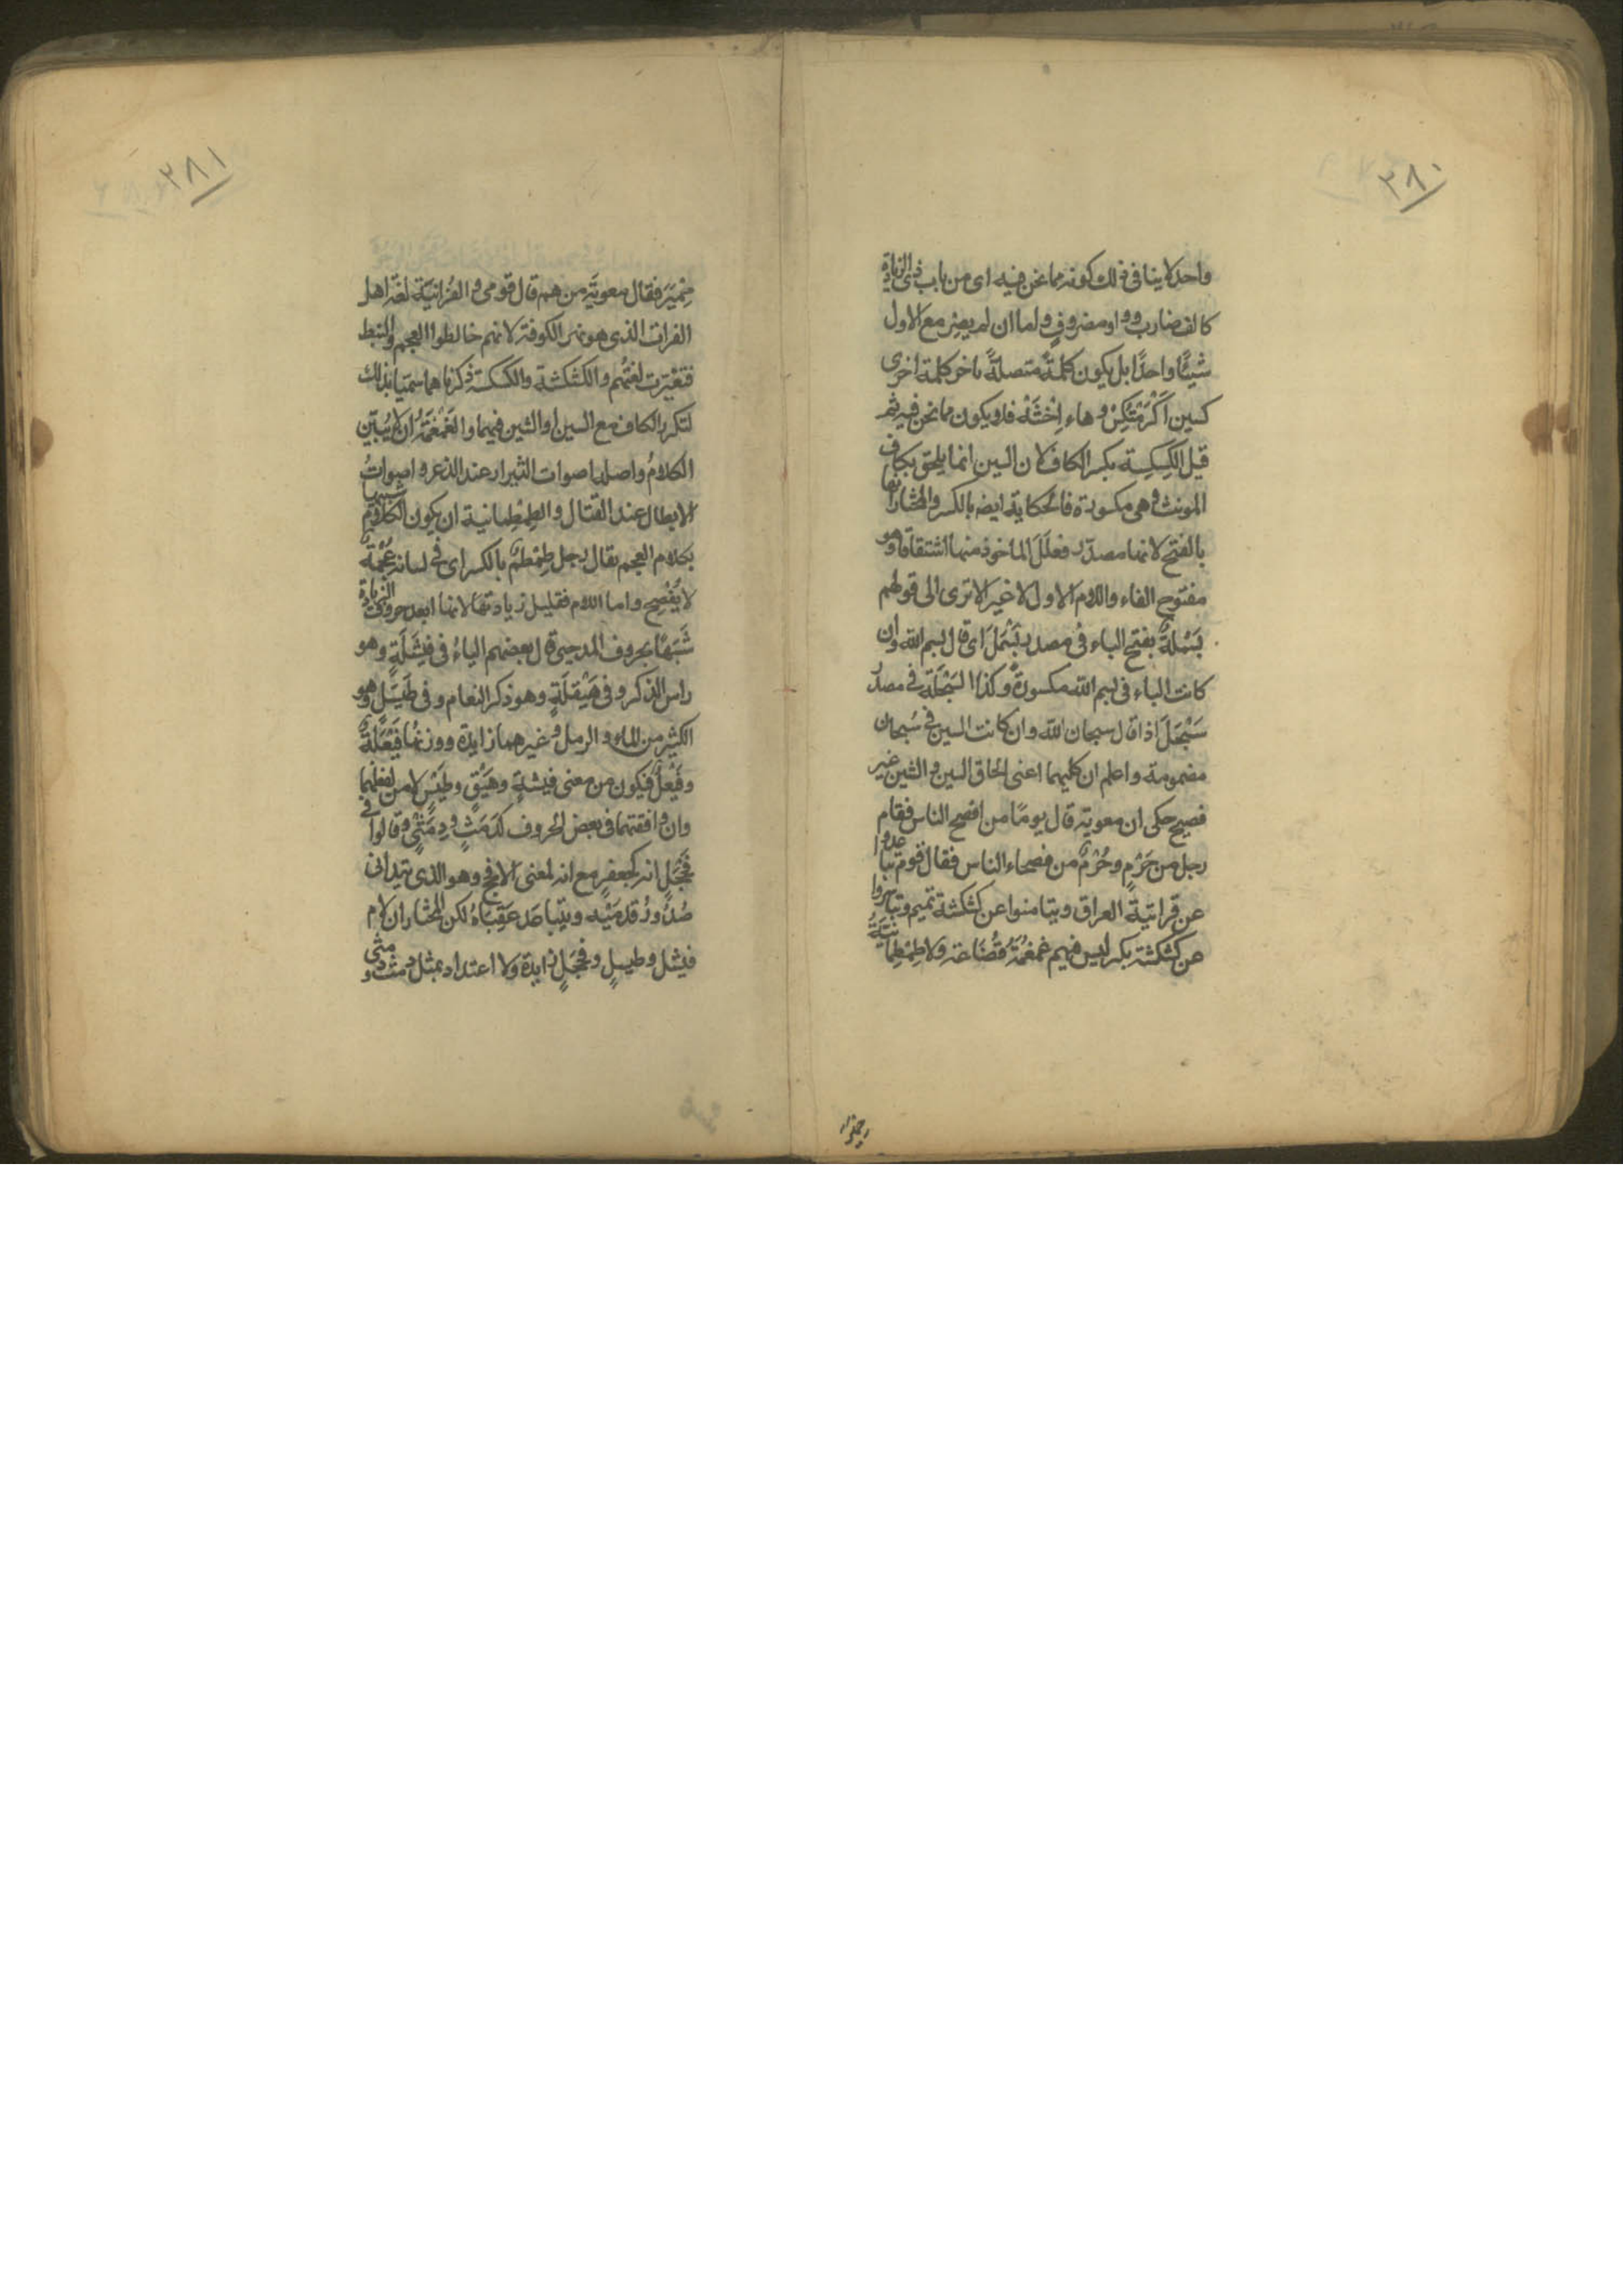 ٢٨٠
واحدا لا ينافي ذلك كونه مما نحن فيه اى من باب ذى الزيادة
كالف ضارب وواو مضروف واما ان لم يصر مع الاول
شيئًا واحدًا بل يكون كلمةً متصلةً باخر كلمة اخرى
كسين اَكْرَمْتُكِسْ وهاء اِخْشَهْ فلا يكون مما نحن فيه ثم
قيل الكِسكِسة بكسر الكاف لان السين انما يلحق بكاف
المونث وهى مكسورة فالحكاية ايضه بالكسر والمختار انها
بالفتح لانها مصدر فعلَلَ الماخوذ منها اشتقاقا وهو
مفتوح الفاء واللام الاول لا غير الا ترى الى قولهم
بَسْمَلةٌ بفتح الباء فى مصدر بَسْمَلَ اى قال بسم الله وان
كانت الباء فى بسم الله مكسورةً وكذا السَبْحَلَة فى مصدر
سَبْحَلَ اذا قال سبحان الله وان كانت السين فى سُبحان
مضمومة واعلم ان كليهما اعنى الحاق السين والشين غير
فصيح حكى ان معوية قال يومًا من افصح الناس فقام
رجل من جَرْمٍ وجُرْمٌ من فصحاء الناس فقال قوم تباعدوا
عن فراتيّة العراق وتيامنوا عن كشكشة تميم وتياسروا
عن كسكسة بكر ليس فيهم غمغمةُ قُضَاعَة ولا طِمْطِمانيّةُ
حِمْيَر
٢٨١
حِمْيَر فقال معوية من هم قال قومى والفُراتيّة لغة اهل
الفرات الذى هو نهر الكوفة لانهم خالطوا العجم والنبط
فتغيّرت لغتُهم والكشكشة والكسكسة ذكرناهما سميتا بذلك
لتكرر الكاف مع السين او الشين فيهما والغَمْغَمَةُ ان لا يُبَيّن
الكلامُ واصلها اصوات الثيران عند الذعر واصواتُ
الابطال عند القتال والطِمْطِمانية ان يكون الكلام شبيها
بكلام العجم يقال رجل طِمْطِمٌ بالكسر اى فى لسانه عُجْمَةٌ
لا يُفْصِح واما اللام فقليل زيادتها لانها ابعد حروف الزيادة
شَبَهًا بحروف المد حتى قال بعضهم الياءُ فى فَيْشَلَةٍ وهو
راس الذكر وفى هَيْقَلَةٍ وهو ذكر النعام وفى طَيْسَلٍ وهو
الكثير من الماء والرمل وغيرهما زايدة ووزنها فَيْعَلَةٌ
وفَيْعَلٌ فيكون من معنى فيشةٍ وهَيْقٍ وطَيْسٍ لا من لفظهما
وان وافقتهما فى بعض الحروف كدَمَثٍ ودِمَثْرٍ وقالوا فى
فَحْجَلٍ انه كجعفرٍ مع انه لمعنى الافحج وهو الذى يتدانى
صُدُورُ قدمَيْه ويتباعَد عَقِبَاهُ لكن المختار ان لام
فيشل وطيسلٍ وفحجلٍ زايدة ولا اعتداد بمثل دمث و